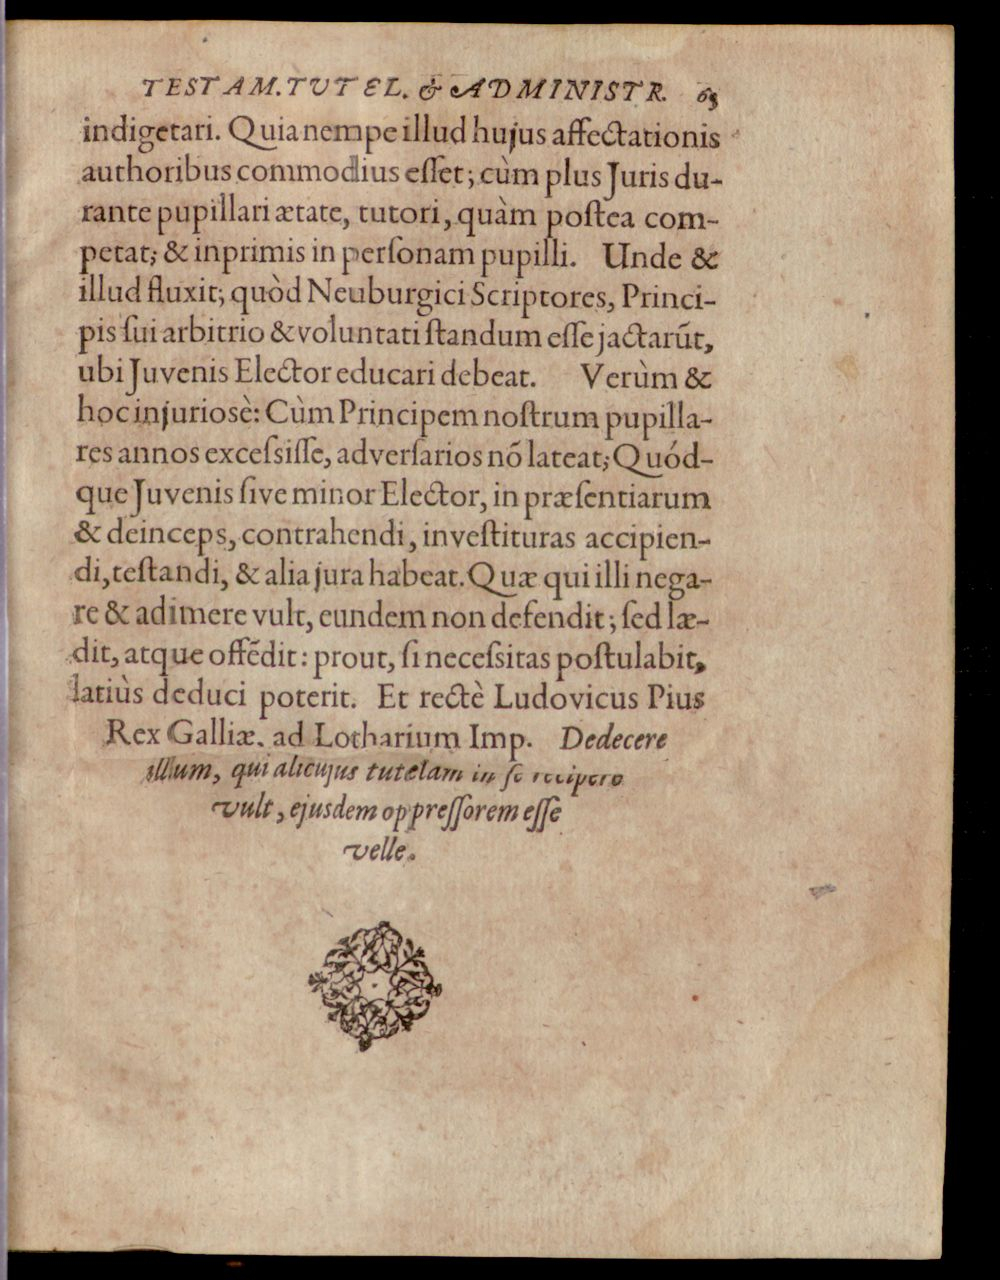 TESTAM. TUTEL. & ADMINISTR. 65
indigetari. Quia nempe illud hujus affectationis
authoribus commodius eſſet; cùm plus Juris du-
rante pupillari ætate, tutori, quàm poſtea com-
petat; & inprimis in perſonam pupilli. Unde &
illud fluxit; quòd Neuburgici Scriptores, Princi-
pis ſui arbitrio & voluntati ſtandum eſſe jactarũt,
ubi Juvenis Elector educari debeat. Verùm &
hoc injuriosè: Cùm Principem noſtrum pupilla-
res annos exceſsiſſe, adverſarios nõ lateat; Quód-
que Juvenis ſive minor Elector, in præſentiarum
& deinceps, contrahendi, inveſtituras accipien-
di, teſtandi, & alia jura habeat. Quæ qui illi nega-
re & adimere vult, eundem non defendit; ſed læ-
dit, atque offẽdit: prout, ſi neceſsitas poſtulabit,
latiùs deduci poterit. Et rectè Ludovicus Pius
Rex Galliæ. ad Lotharium Imp. Dedecere
illum, qui alicujus tutelam in ſe recipere
vult, ejusdem oppreſſorem eſſe
velle.